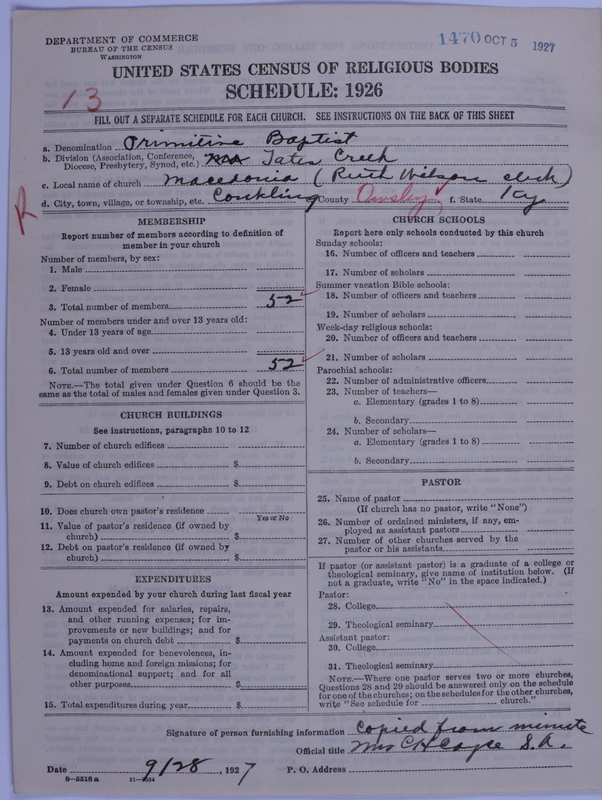 DEPARTMENT OF COMMERCE
BUREAU OF THE CENSUS
WASHINGTON
1470 OCT 5 1927
UNITED STATES CENSUS OF RELIGIOUS BODIES
SCHEDULE: 1926
13
FILL OUT A SEPARATE SCHEDULE FOR EACH CHURCH. SEE INSTRUCTIONS ON THE BACK OF THIS SHEET
a. Denomination Primitive Baptist
b. Division (Association, Conference, Diocese, Presbytery, Synod, etc.) Tates Creek
c. Local name of church Macedonia (Ruth Wilson clerk)
d. City, town, village, or township, etc. Conkling County Owsley f. State Ky
R
MEMBERSHIP
Report number of members according to definition of
member in your church
Number of members, by sex:
1. Male
2. Female
3. Total number of members 52
Number of members under and over 13 years old:
4. Under 13 years of age
5. 13 years old and over
6. Total number of members 52
NOTE.—The total given under Question 6 should be the
same as the total of males and females given under Question 3.
CHURCH BUILDINGS
See instructions, paragraphs 10 to 12
7. Number of church edifices
8. Value of church edifices $
9. Debt on church edifices $
10. Does church own pastor's residence
Yes or No
11. Value of pastor's residence (if owned by
church) $
12. Debt on pastor's residence (if owned by
church) $
EXPENDITURES
Amount expended by your church during last fiscal year
13. Amount expended for salaries, repairs,
and other running expenses; for im-
provements or new buildings; and for
payments on church debt $
14. Amount expended for benevolences, in-
cluding home and foreign missions; for
denominational support; and for all
other purposes $
15. Total expenditures during year $
CHURCH SCHOOLS
Report here only schools conducted by this church
Sunday schools:
16. Number of officers and teachers
17. Number of scholars
Summer vacation Bible schools:
18. Number of officers and teachers
19. Number of scholars
Week-day religious schools:
20. Number of officers and teachers
21. Number of scholars
Parochial schools:
22. Number of administrative officers
23. Number of teachers—
a. Elementary (grades 1 to 8)
b. Secondary
24. Number of scholars—
a. Elementary (grades 1 to 8)
b. Secondary
PASTOR
25. Name of pastor
(If church has no pastor, write "None")
26. Number of ordained ministers, if any, em-
ployed as assistant pastors
27. Number of other churches served by the
pastor or his assistants
If pastor (or assistant pastor) is a graduate of a college or
theological seminary, give name of institution below. (If
not a graduate, write "No" in the space indicated.)
Pastor:
28. College
29. Theological seminary
Assistant pastor:
30. College
31. Theological seminary
NOTE.—Where one pastor serves two or more churches,
Questions 28 and 29 should be answered only on the schedule
for one of the churches; on the schedules for the other churches,
write "See schedule for church."
Signature of person furnishing information Copied from minute
Official title Mrs C H S. A.
Date 9/28, 1927 P. O. Address
8—5518a